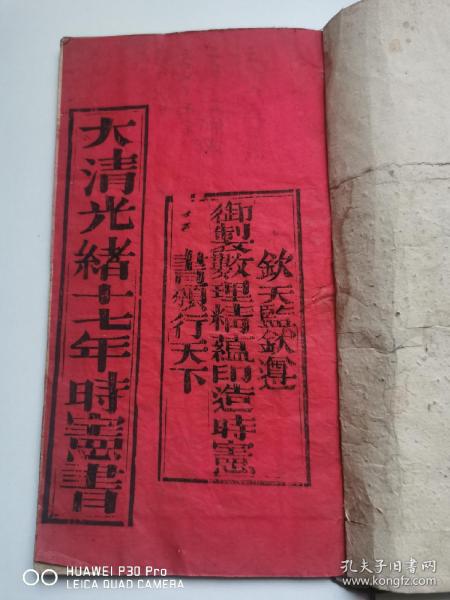 欽天監欽遵
御製數理精蘊印造時憲
書頒行天下
大清光緒十七年時憲書
HUAWEI P30 Pro
LEICA QUAD CAMERA
孔夫子旧书网